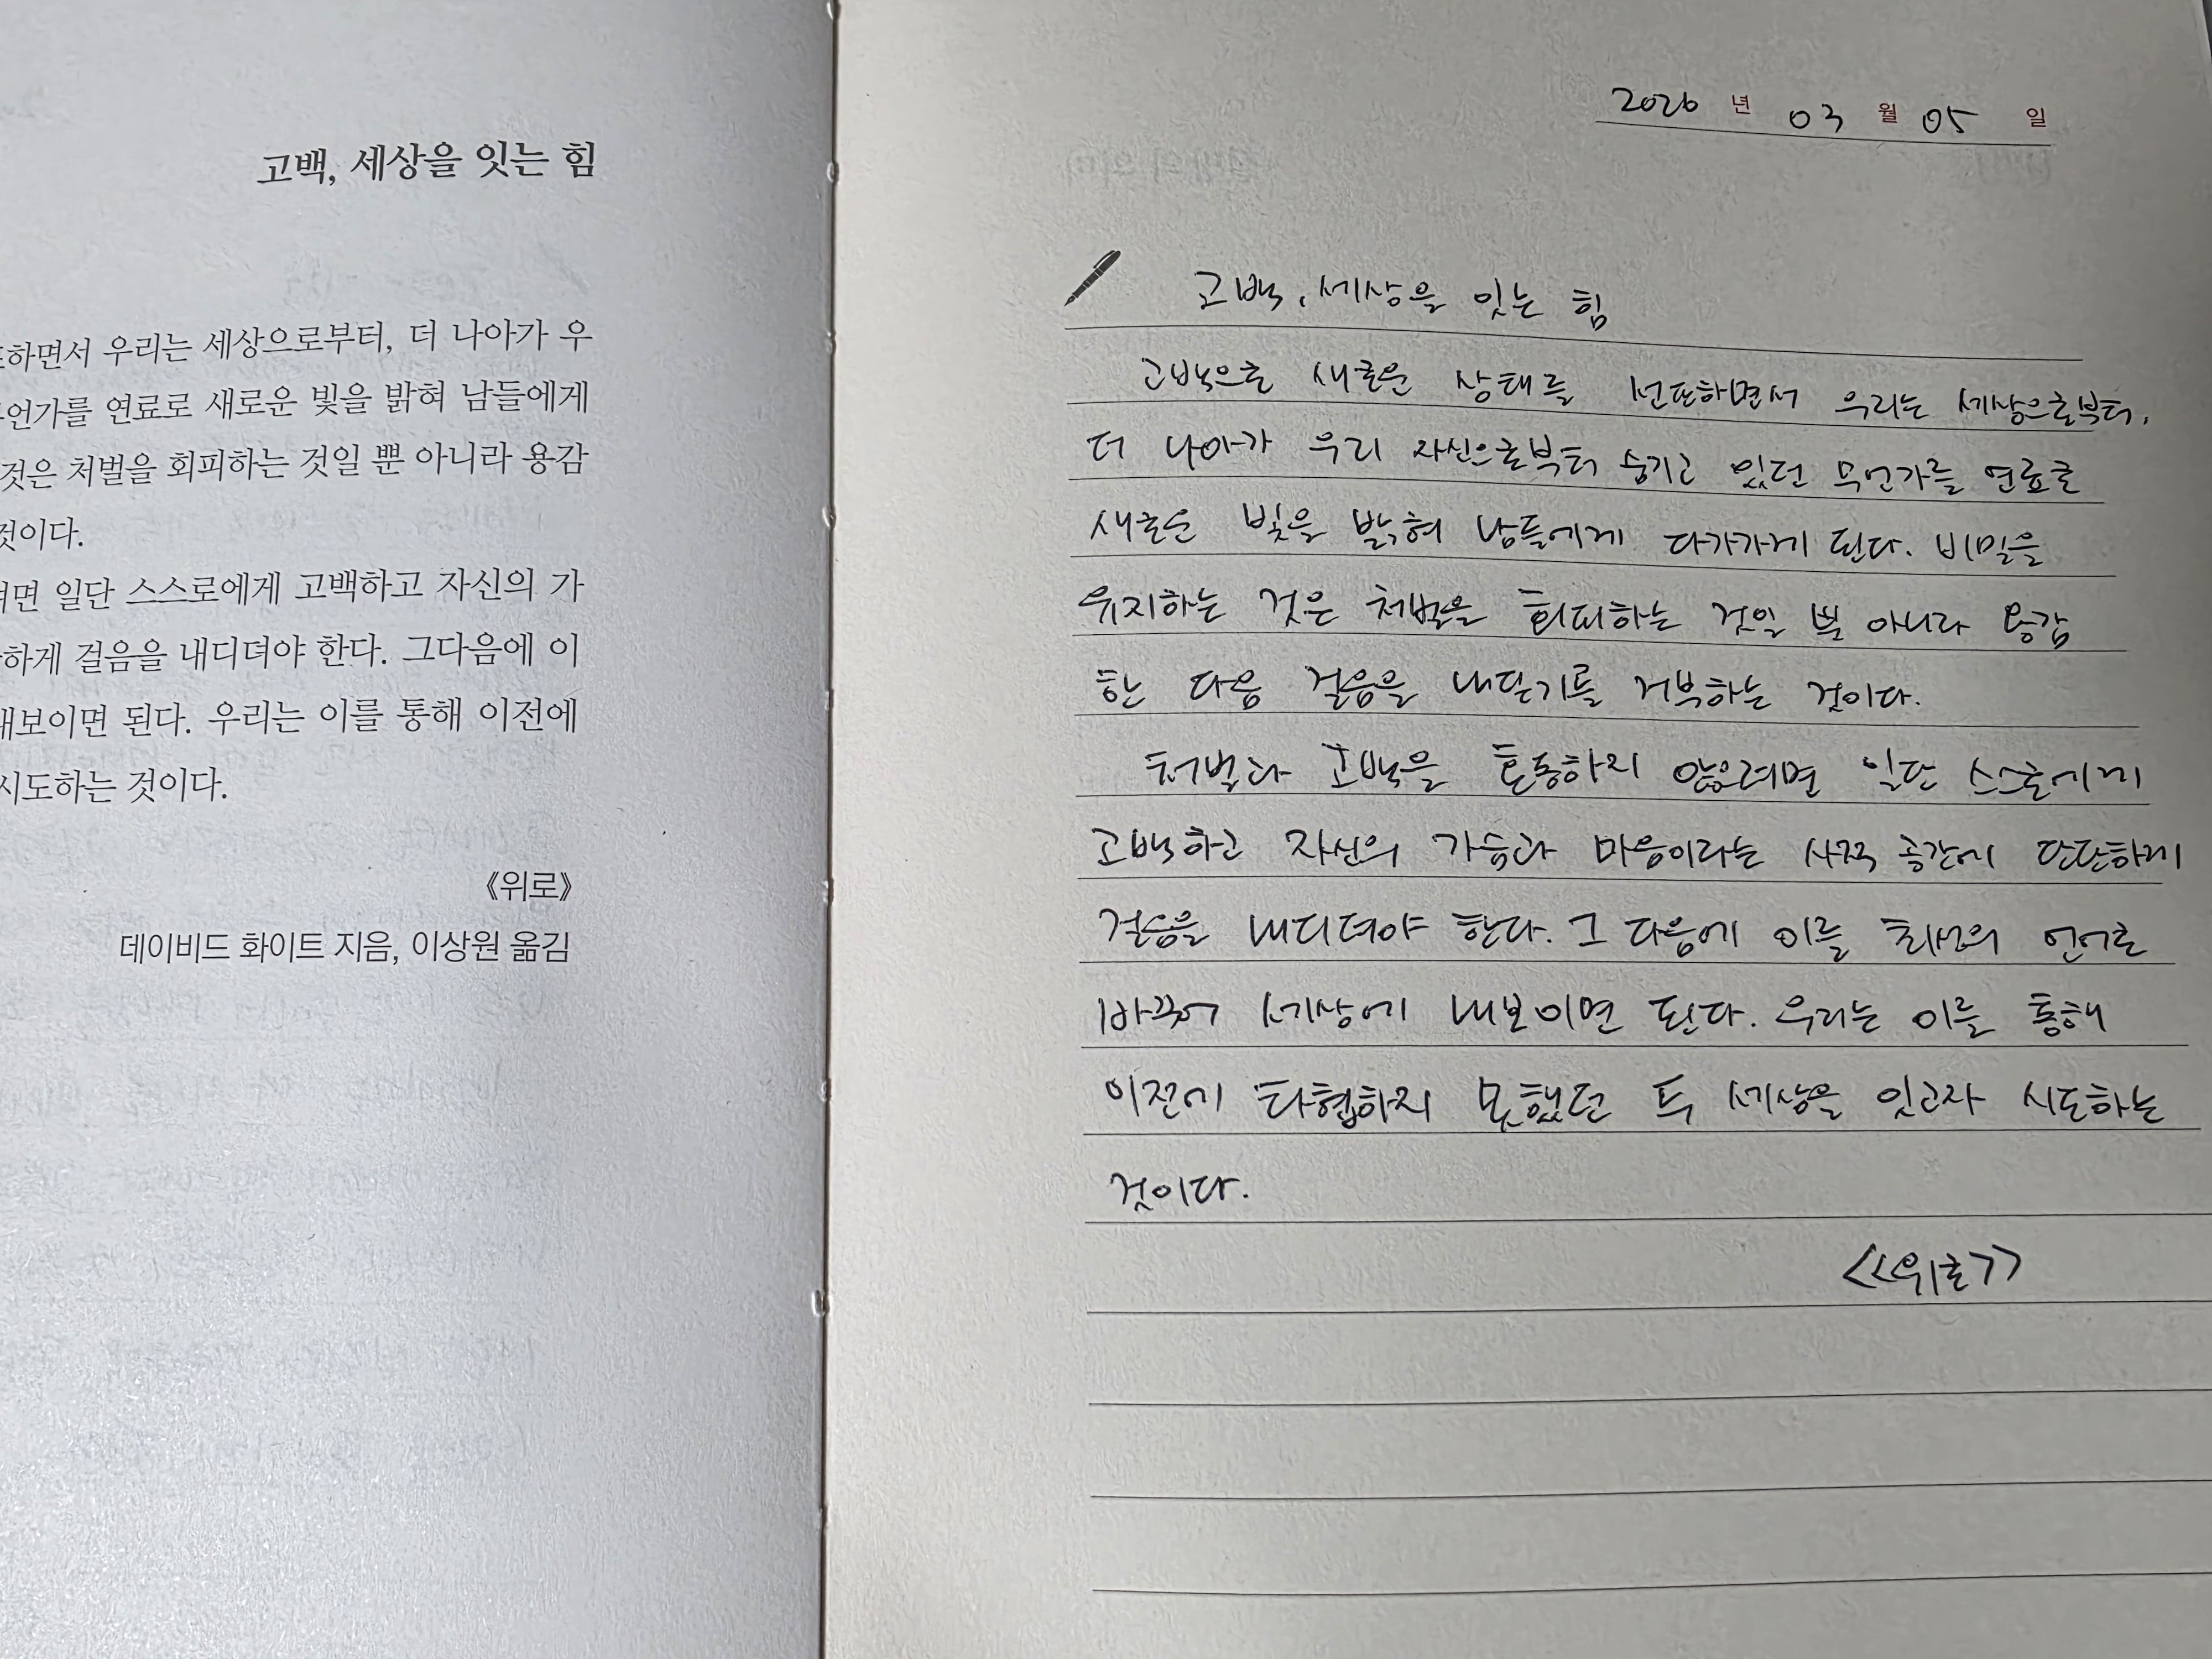 고백, 세상을 잇는 힘
하면서 우리는 세상으로부터, 더 나아가 우
언가를 연료로 새로운 빛을 밝혀 남들에게
것은 처벌을 회피하는 것일 뿐 아니라 용감
것이다.
면 일단 스스로에게 고백하고 자신의 가
하게 걸음을 내디뎌야 한다. 그다음에 이
내보이면 된다. 우리는 이를 통해 이전에
시도하는 것이다.
《위로》
데이비드 화이트 지음, 이상원 옮김
2026 년 03 월 05 일
고백, 세상을 잇는 힘
고백으로 새로운 상태를 선포하면서 우리는 세상으로부터,
더 나아가 우리 자신으로부터 숨기고 있던 무언가를 연료로
새로운 빛을 밝혀 남들에게 다가가게 된다. 비밀을
유지하는 것은 처벌을 회피하는 것일 뿐 아니라 용감
한 다음 걸음을 내딛기를 거부하는 것이다.
처벌과 고백을 혼동하지 않으려면 일단 스스로에게
고백하고 자신의 가슴과 마음이라는 사적 공간에 단단하게
걸음을 내디뎌야 한다. 그 다음에 이를 최선의 언어로
바꾸어 세상에 내보이면 된다. 우리는 이를 통해
이전에 타협하지 못했던 두 세상을 잇고자 시도하는
것이다.
<<위로>>